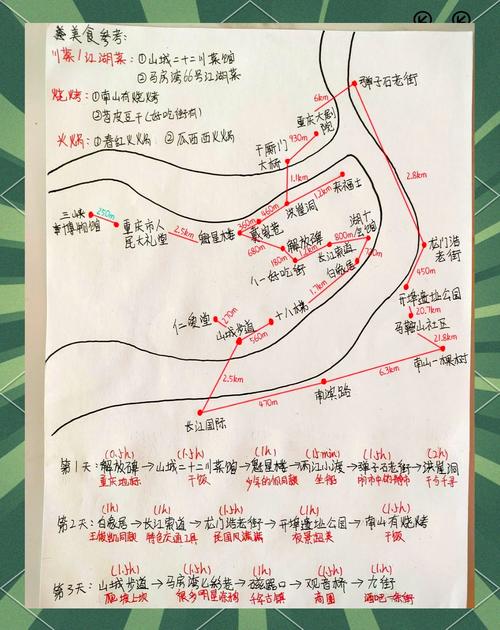 美食参考:
川菜/江湖菜: ①山城二十二川菜馆
②马房湾66号江湖菜
烧烤: ①南山有烧烤
②苕皮豆干(好吃街有)
火锅: ①春红火火锅 ②瓜西西火锅
弹子石老街
6km
重庆大剧院
930m
千厮门大桥
1.1km
1.2km
来福士
2.8km
洪崖洞
460m
360m
戴家巷
魁星楼
2.5km
重庆市人民大礼堂
250m
三峡博物馆
680m
解放碑
180m
八一好吃街
1.2km
长江索道
800m
湖广会馆
700m
白象居
1.7km
十八梯
560m
山城步道
270m
仁爱堂
2.5km
长江国际
470m
南滨路
6.3km
南山一棵树
21.8km
马鞍山社区
20.7km
开埠遗址公园
450m
龙门浩老街
(0.5h) (1.5h) (1h) (15min) (1.5h) (2h)
第1天: 解放碑→山城二十二川菜馆→魁星楼→两江小渡→弹子石老街→洪崖洞
重庆地标 干饭 少年的你同款 坐船 千与千寻
(1h) (1h) (1.5h) (1h) (1.5h)
第2天: 白象居→长江索道→龙门浩老街→开埠遗址公园→南山有烧烤
特色交通工具 民国风满满 夜景超美 干饭
(1.5h) (1.5h) (1h) (1.5h) (1.h)
第3天: 山城步道→马房湾→磁器口→观音桥→九街
爬坡上坎 很多明星 千年古镇 商圈 酒吧一条街